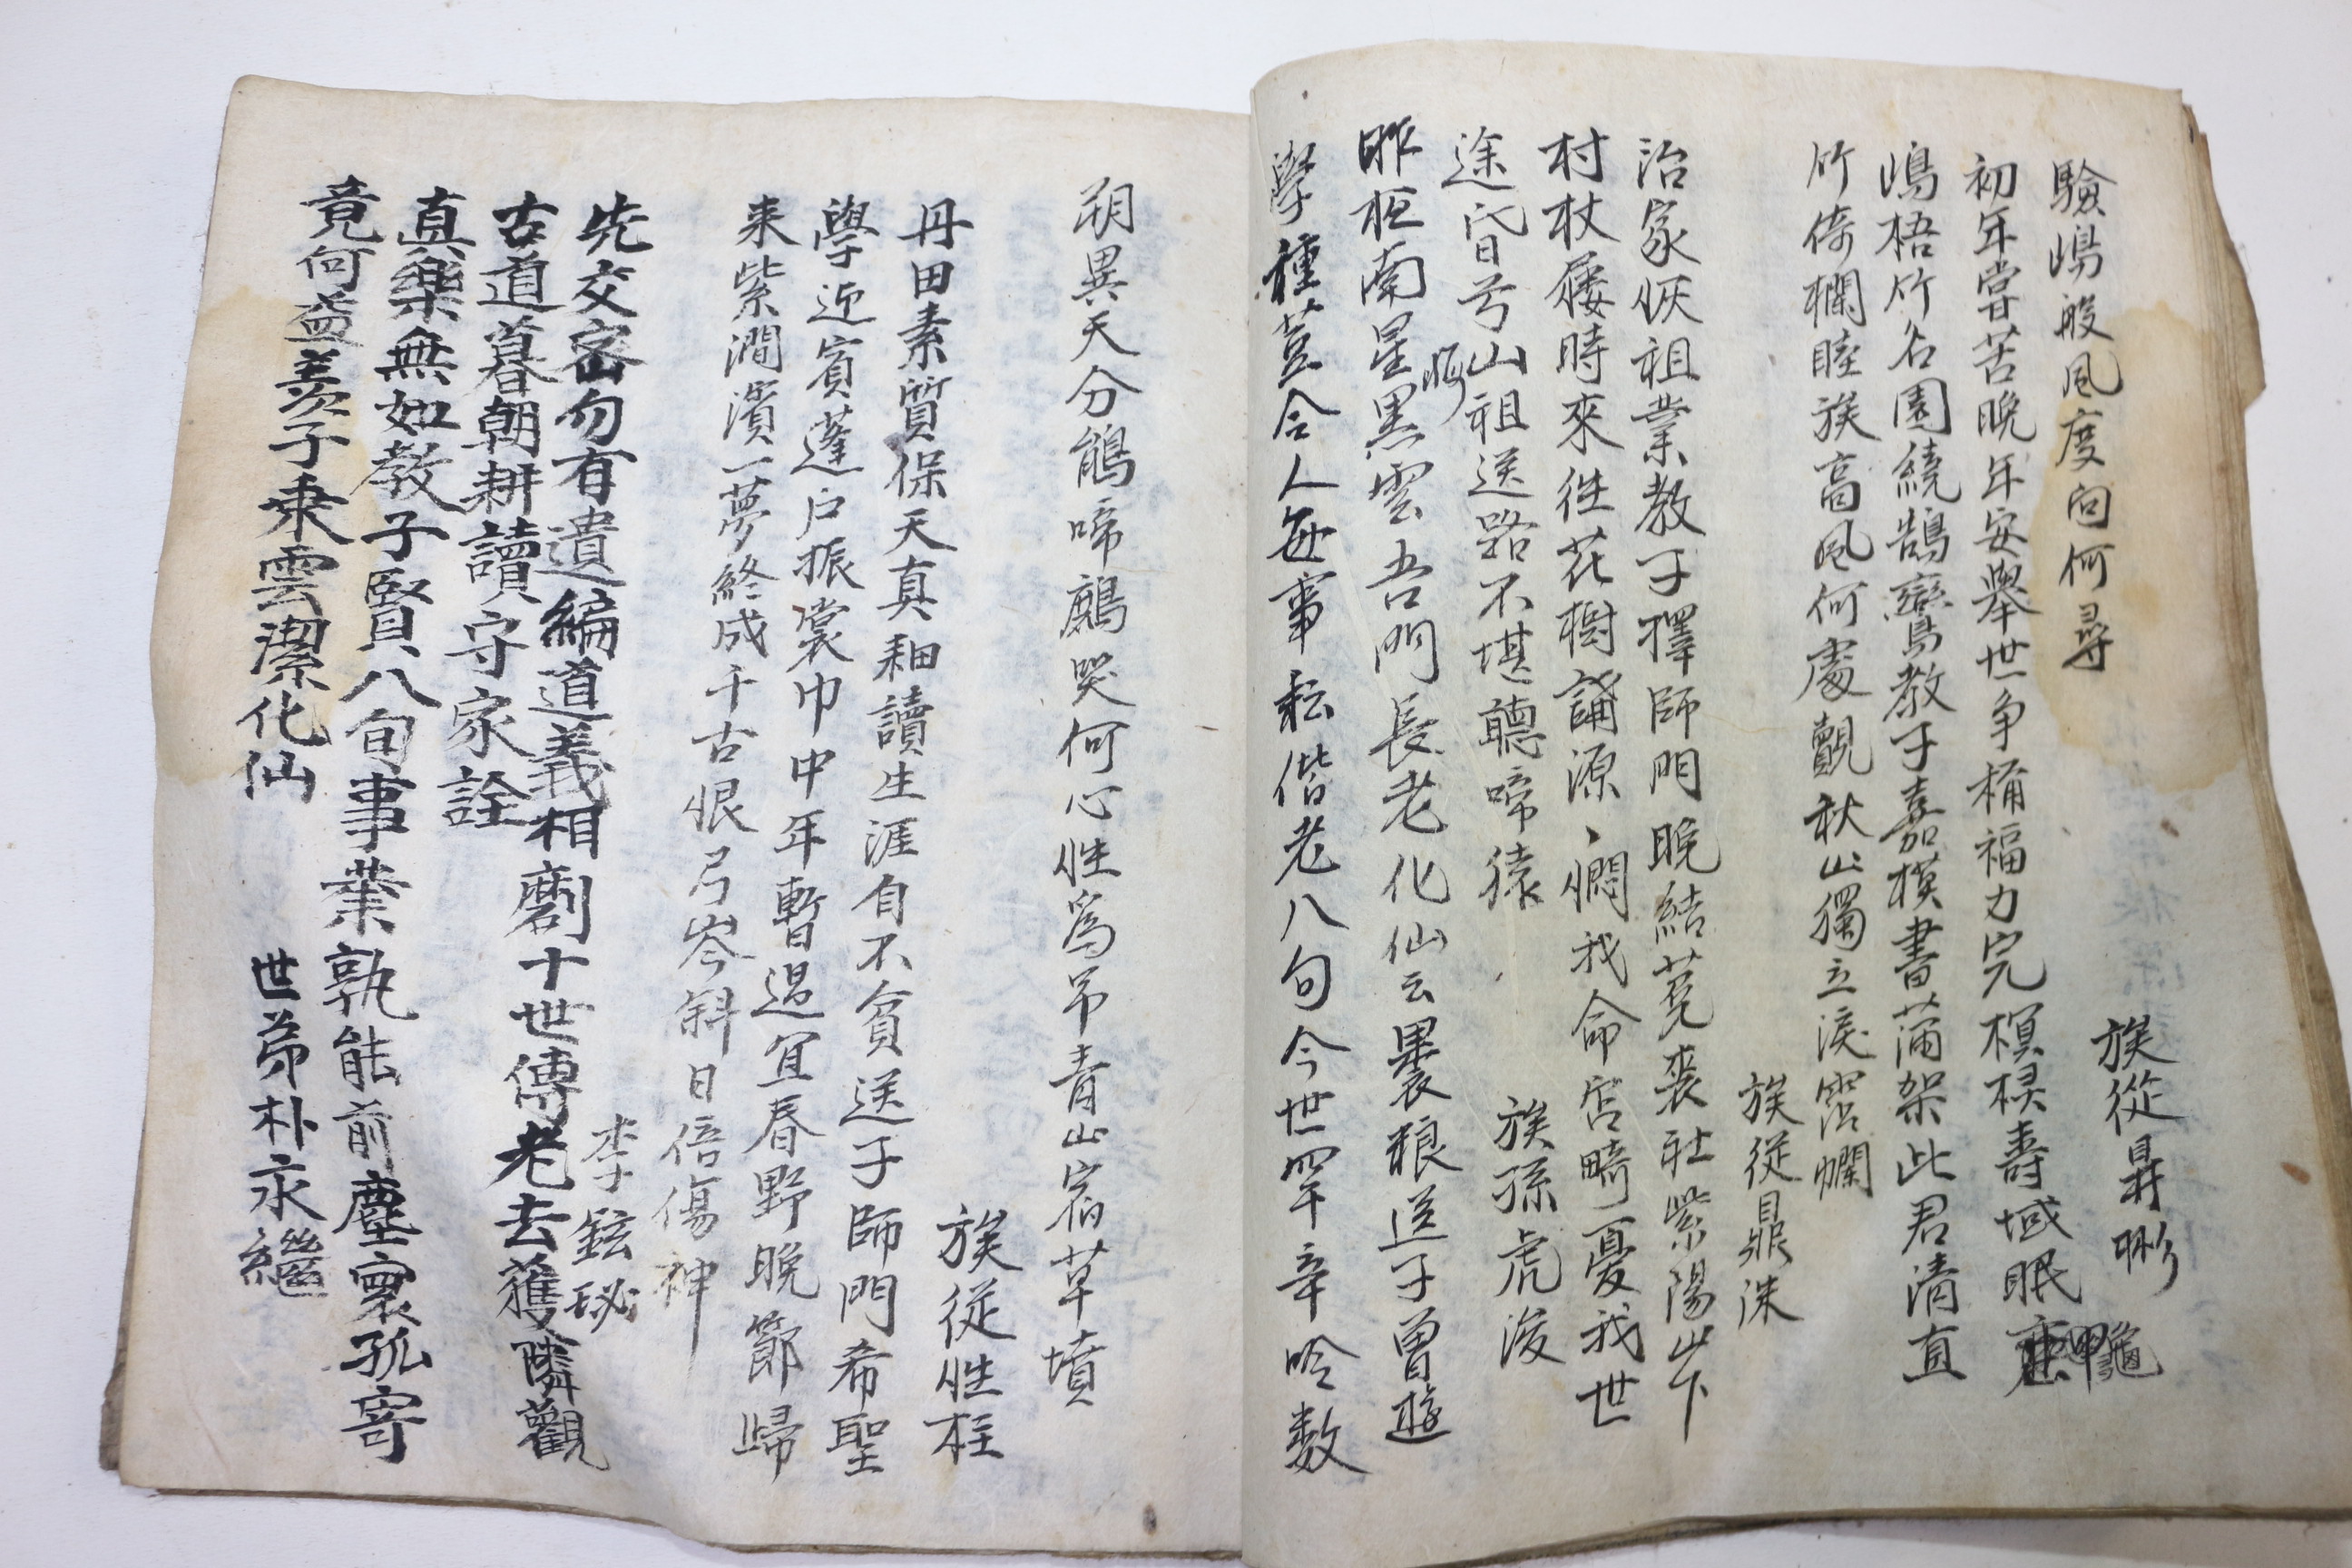 驗嶋般風度向何尋
族從昇彬
初年嘗苦晩年安舉世争稱福力完榠樑壽域眠龜甲
嶋梧竹名園繞鵲鸞教子嘉模書蒲架此君清直
竹倚欄睦族高風何處覿秋山獨立淚霑爛
族從鼎洙
治家恢祖業教子擇師門晩結莵裘社紫陽山下
村杖屨時來徃花樹誦源、憫我命宮畸憂我世
途昏兮山祖送路不堪聽啼猿
族孫虎浚
昨夜南星黑雲吾門長老化仙云褁粮送子曾遊
學種荳令人每事耘偕老八旬今世罕辛吟数
朔異天分鵑啼鷓哭何心性爲吊青山宿草墳
族從性柱
丹田素質保天真耕讀生涯自不貧送子師門希聖
學迎賓蓬户振裳巾中年暫過宜春野晩節歸
来紫澗濱一夢終成千古恨弓岑斜日倍傷神
李鉉珌
先交密勿有遺編道義相劘十世傳老去獲隣觀
古道暮朝耕讀守家詮
真樂無如教子賢八旬事業孰能前塵寰孤寄
竟何益羡子乘雲潔化仙
世弟朴永繼